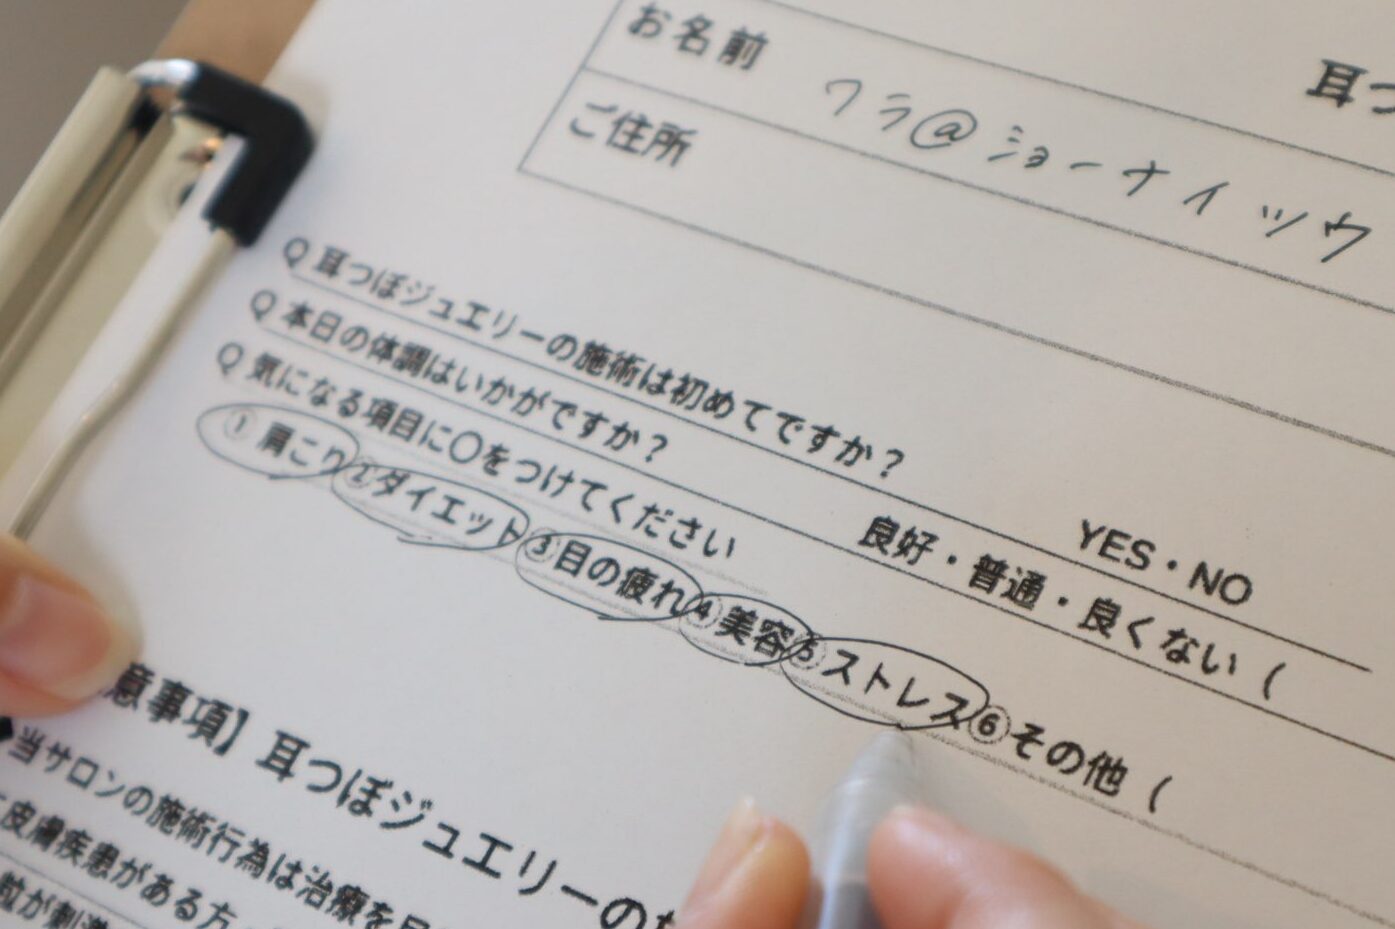 耳つ
お名前 ワラ@ショーナイッウ
ご住所
Q 耳つぼジュエリーの施術は初めてですか? YES・NO
Q 本日の体調はいかがですか? 良好・普通・良くない (
Q 気になる項目に〇をつけてください
① 肩こり ②ダイエット ③目の疲れ ④美容 ⑤ストレス ⑥その他 (
意事項】耳つぼジュエリーの
当サロンの施術行為は治療を目
皮膚疾患がある方・
粒が刺激